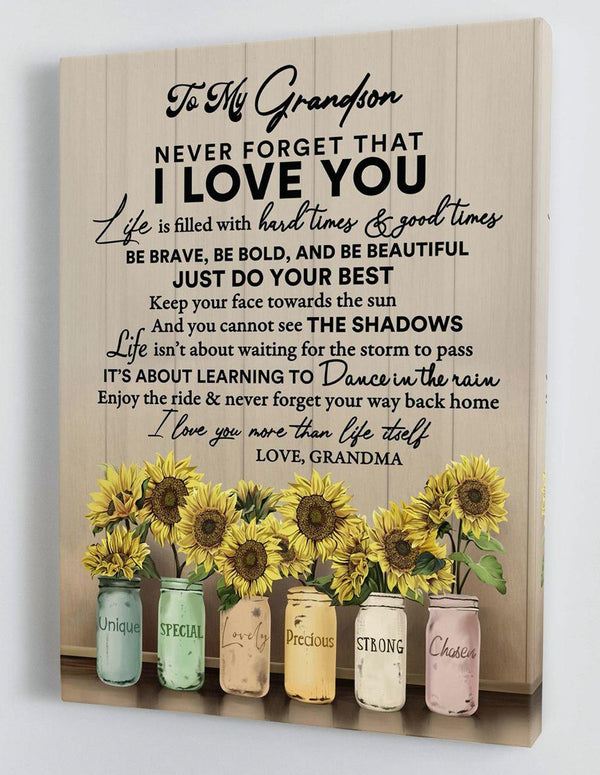 To My Grandson
NEVER FORGET THAT
I LOVE YOU
Life is filled with hard times & good times
BE BRAVE, BE BOLD, AND BE BEAUTIFUL
JUST DO YOUR BEST
Keep your face towards the sun
And you cannot see THE SHADOWS
Life isn't about waiting for the storm to pass
IT'S ABOUT LEARNING TO Dance in the rain
Enjoy the ride & never forget your way back home
I love you more than life itself
LOVE, GRANDMA
Unique
SPECIAL
Lovely
Precious
STRONG
Chosen